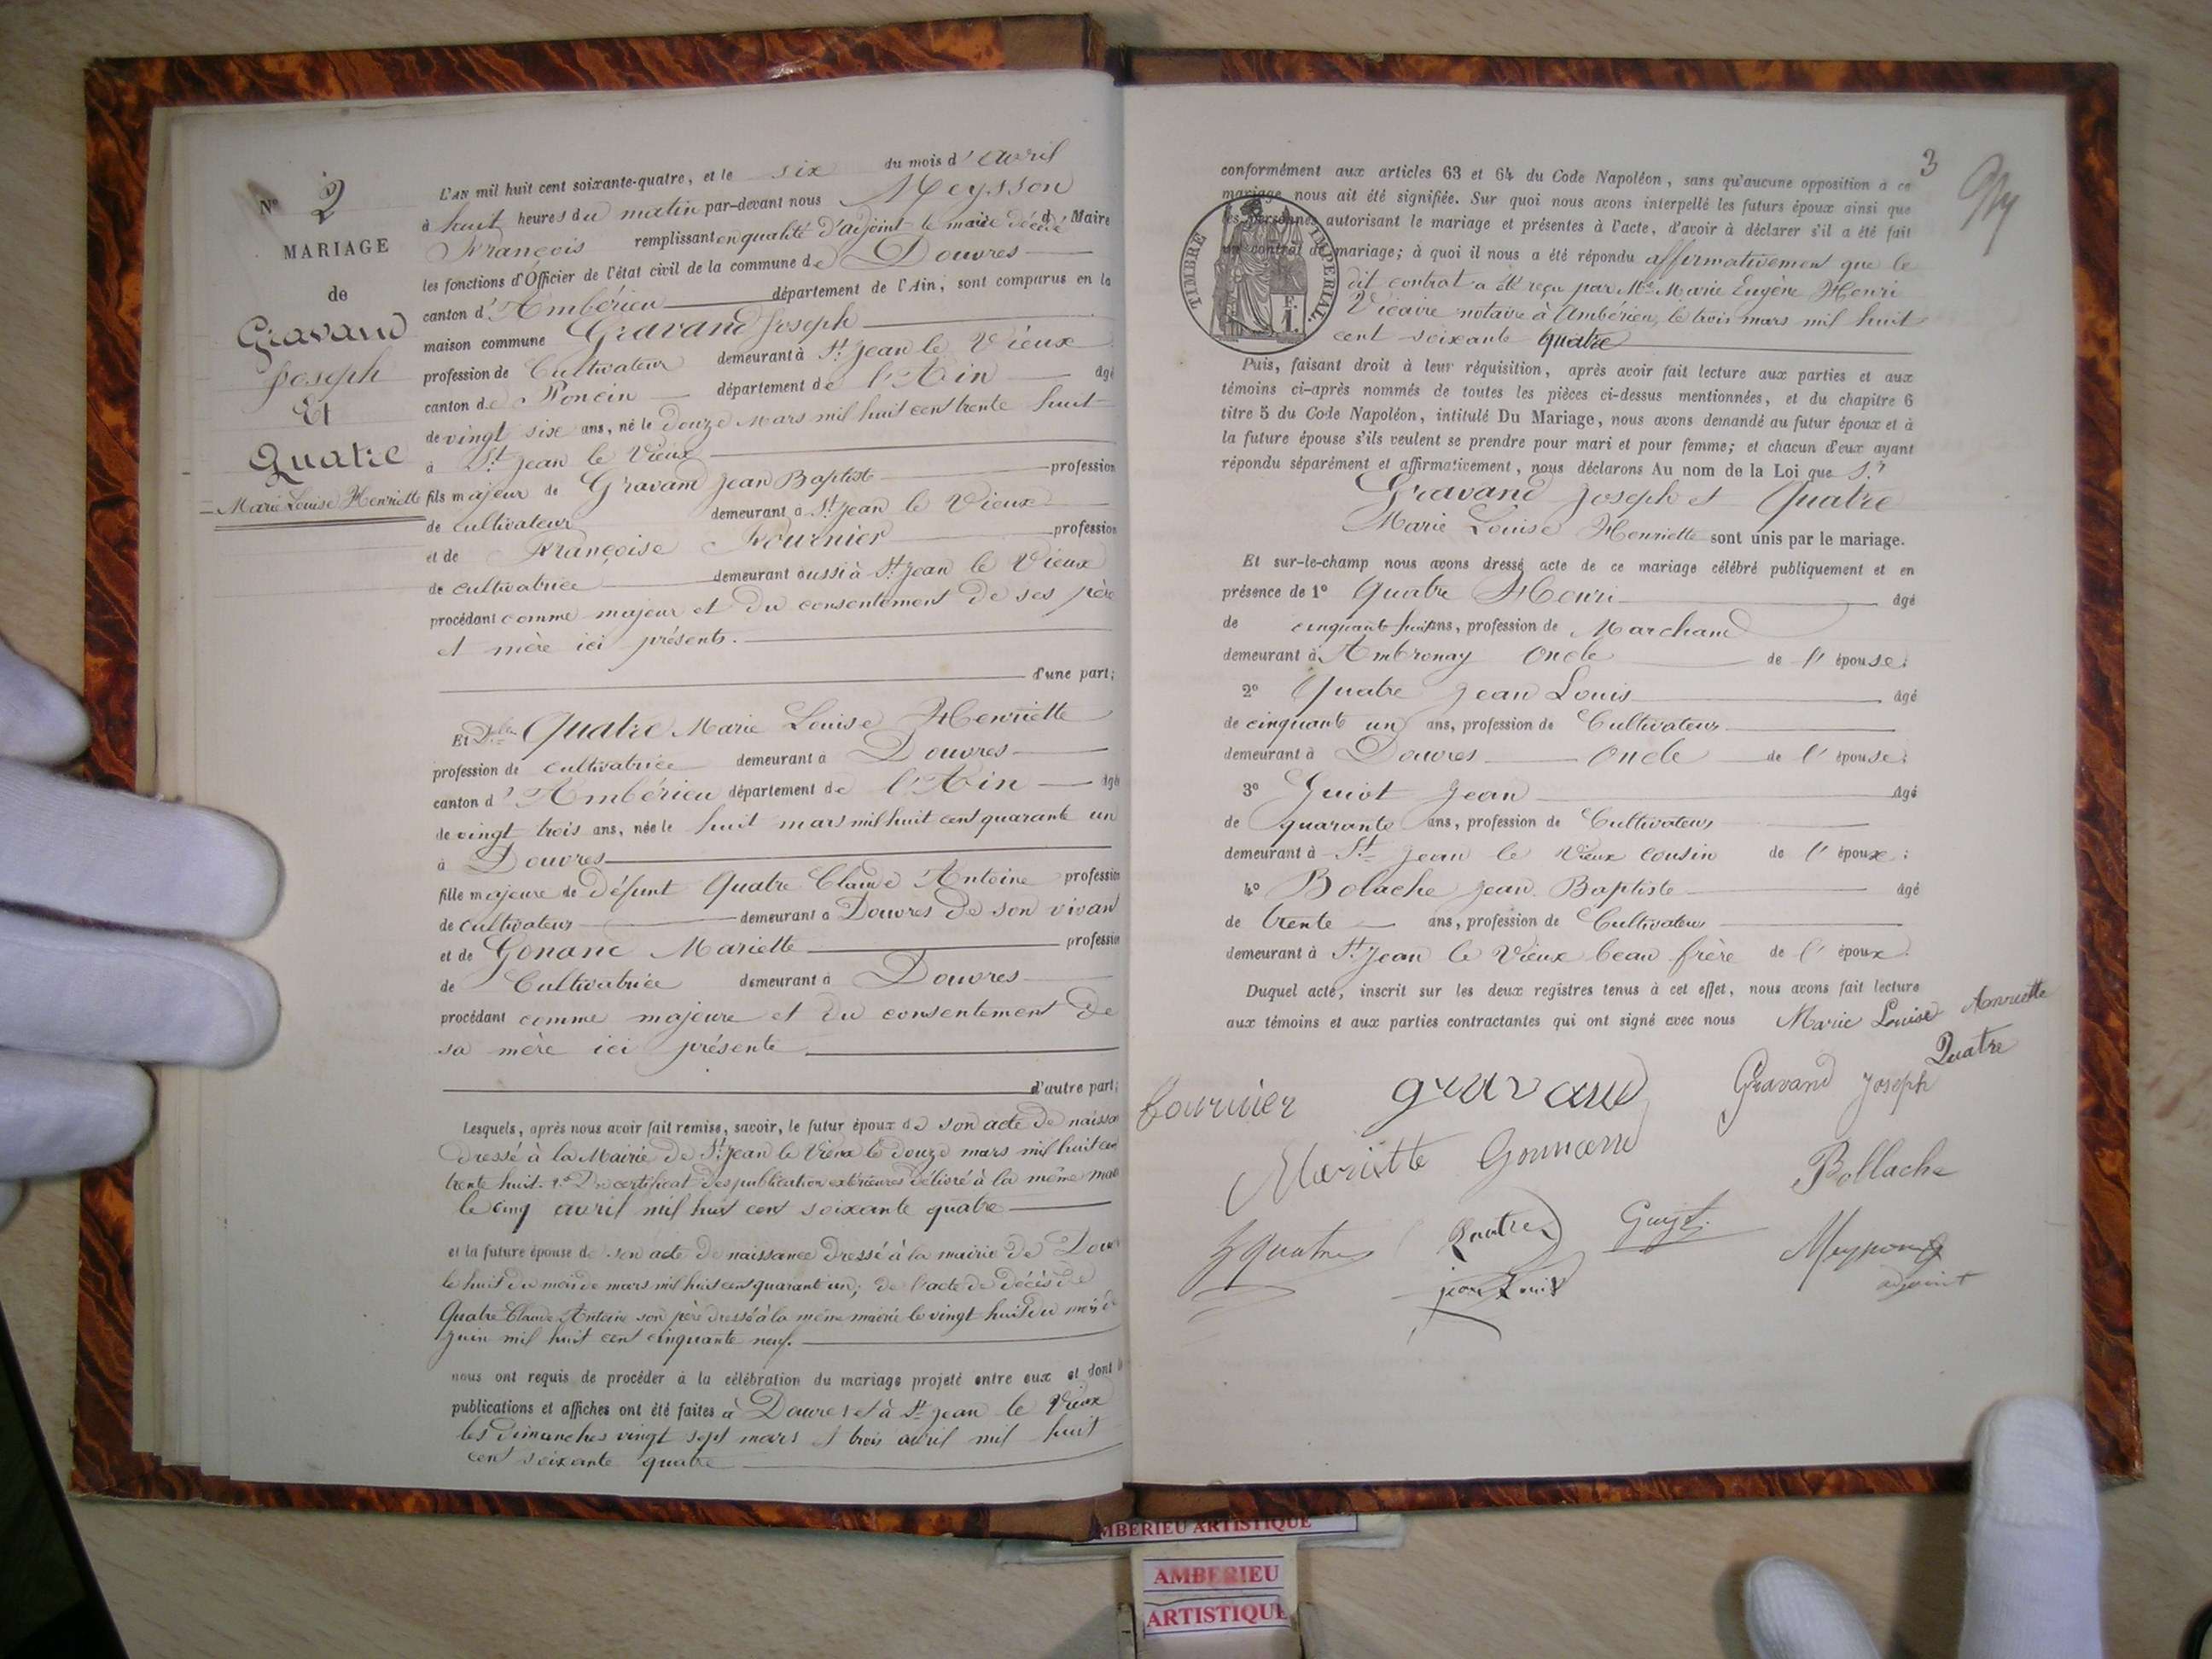 N° 2
MARIAGE
de
Gravand
Joseph
Et
Quatre
Marie Louise Henriette
L'AN mil huit cent soixante-quatre, et le six du mois d'avril
à huit heures du matin par-devant nous Meysson
François remplissant en qualité d'adjoint le maire décédé Maire
les fonctions d'Officier de l'état civil de la commune de Douvres
canton d'Ambérieu département de l'Ain, sont comparus en la
maison commune Gravand Joseph
profession de Cultivateur demeurant à St Jean le Vieux
canton de Poncin département de l'Ain âgé
de vingt six ans, né le douze Mars mil huit cent trente huit
à St Jean le Vieux
fils majeur de Gravand Jean Baptiste profession
de cultivateur demeurant à St Jean le Vieux
et de Françoise Fournier profession
de cultivatrice demeurant aussi à St Jean le Vieux
procédant comme majeur et du consentement de ses père
et mère ici présents.
d'une part;
Et Dlle Quatre Marie Louise Henriette
profession de cultivatrice demeurant à Douvres
canton d'Ambérieu département de l'Ain âgé
de vingt trois ans, née le huit mars mil huit cent quarante un
à Douvres
fille majeure de défunt Quatre Claude Antoine profession
de cultivateur demeurant à Douvres de son vivant
et de Gonanc Mariette profession
de Cultivatrice demeurant à Douvres
procédant comme majeure et du consentement de
sa mère ici présente
d'autre part;
Lesquels, après nous avoir fait remise, savoir, le futur époux de son acte de naissa
dressé à la Mairie de St Jean le Vieux le douze mars mil huit cen
trente huit. certificat des publication extérieures délivré à la même mai
le cinq avril mil huit cent soixante quatre
et la future épouse de son acte de naissance dressé à la mairie de Douv
le huit du mois de mars mil huit cent quarante un; de l'acte de décès de
Quatre Claude Antoine son père dressé à la même mairie le vingt huit du mois de
juin mil huit cent cinquante neuf.
nous ont requis de procéder à la célébration du mariage projeté entre eux et dont
publications et affiches ont été faites à Douvres et à St Jean le Vieux
les dimanches vingt sept mars et trois avril mil huit
cent soixante quatre
3
conformément aux articles 63 et 64 du Code Napoléon, sans qu'aucune opposition à ce
mariage nous ait été signifiée. Sur quoi nous avons interpellé les futurs époux ainsi que
les personnes autorisant le mariage et présentes à l'acte, d'avoir à déclarer s'il a été fait
un contrat de mariage; à quoi il nous a été répondu affirmativement que le
dit contrat a été reçu par Me Marie Eugène Henri
Vicaire notaire à Ambérieu, le trois mars mil huit
cent soixante quatre
TIMBRE IMPERIAL
F. 1.
Puis, faisant droit à leur réquisition, après avoir fait lecture aux parties et aux
témoins ci-après nommés de toutes les pièces ci-dessus mentionnées, et du chapitre 6
titre 5 du Code Napoléon, intitulé Du Mariage, nous avons demandé au futur époux et à
la future épouse s'ils veulent se prendre pour mari et pour femme; et chacun d'eux ayant
répondu séparément et affirmativement, nous déclarons Au nom de la Loi que Sr
Gravand Joseph et Quatre
Marie Louise Henriette sont unis par le mariage.
Et sur-le-champ nous avons dressé acte de ce mariage célébré publiquement et en
présence de 1° Quatre Henri âgé
de cinquante huit ans, profession de Marchand
demeurant à Ambronay Oncle de l'épouse;
2° Quatre Jean Louis âgé
de cinquante un ans, profession de Cultivateur
demeurant à Douvres Oncle de l'épouse;
3° Guiot Jean âgé
de quarante ans, profession de Cultivateur
demeurant à St Jean le Vieux cousin de l'époux;
4° Bolache Jean Baptiste âgé
de trente ans, profession de Cultivateur
demeurant à St Jean le Vieux beau frère de l'époux.
Duquel acte, inscrit sur les deux registres tenus à cet effet, nous avons fait lecture
aux témoins et aux parties contractantes qui ont signé avec nous Marie Louise Anriette
Quatre
fournier gravand Gravand Joseph
Mariette Gonnand Bollache
Quatre Quatre Guyot Meysson
jean Louis adjoint
AMBERIEU ARTISTIQUE
AMBERIEU
ARTISTIQUE